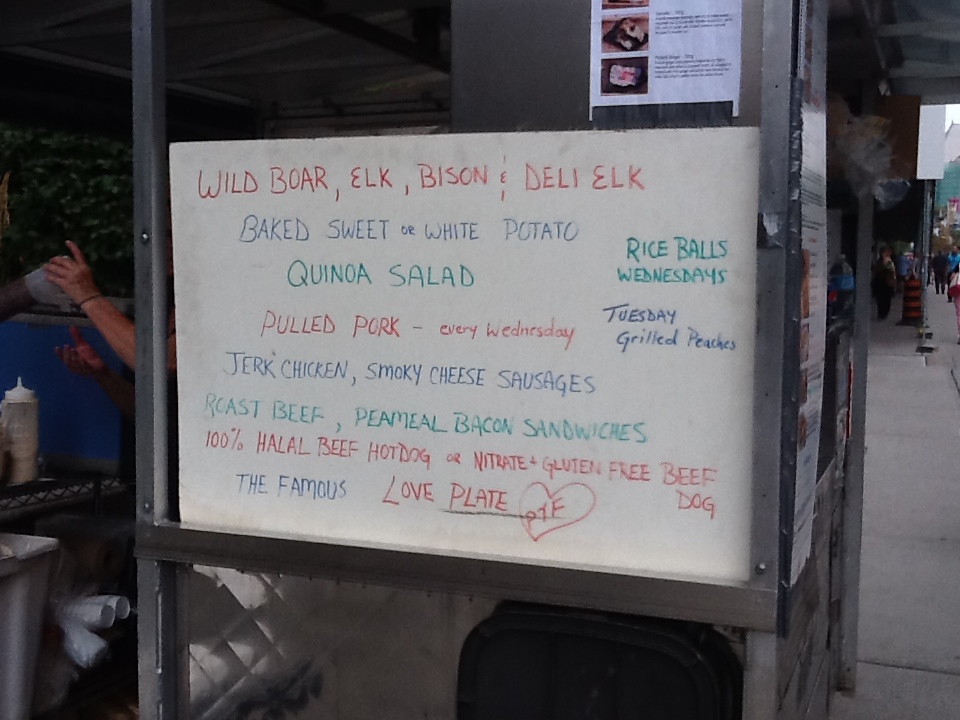 WILD BOAR, ELK, BISON & DELI ELK
BAKED SWEET OR WHITE POTATO
QUINOA SALAD
RICE BALLS
WEDNESDAYS
PULLED PORK - every Wednesday
TUESDAY
Grilled Peaches
JERK CHICKEN, SMOKY CHEESE SAUSAGES
ROAST BEEF, PEAMEAL BACON SANDWICHES
100% HALAL BEEF HOTDOG OR NITRATE + GLUTEN FREE BEEF
DOG
THE FAMOUS LOVE PLATE